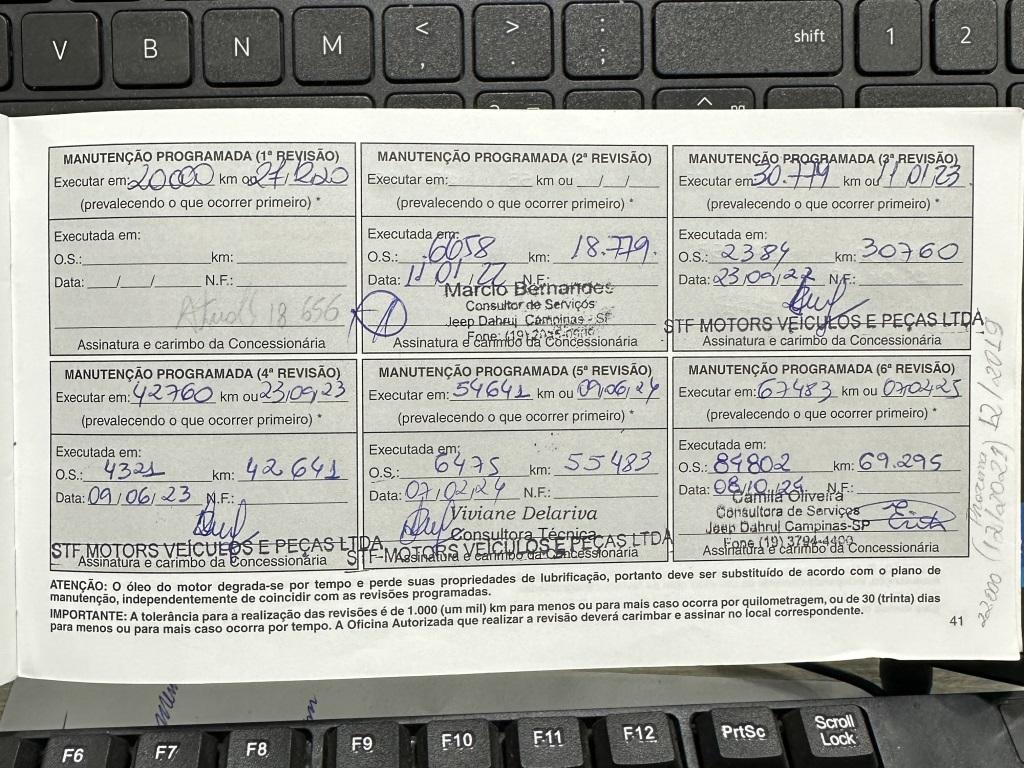 V B N M < , > . : ; shift 1 2
MANUTENÇÃO PROGRAMADA (1ª REVISÃO)
Executar em: 20000 km ou 27/12/20
(prevalecendo o que ocorrer primeiro) *
Executada em:
O.S.: km:
Data: / / N.F.:
Atual 18 656
Assinatura e carimbo da Concessionária
MANUTENÇÃO PROGRAMADA (2ª REVISÃO)
Executar em: km ou / /
(prevalecendo o que ocorrer primeiro) *
Executada em:
O.S.: 6658 km: 18.779.
Data: 11/01/22 N.F.:
Marcio Bernandes
Consultor de Serviços
Jeep Dahruj Campinas - SP
Fone: (19)
Assinatura e carimbo da Concessionária
MANUTENÇÃO PROGRAMADA (3ª REVISÃO)
Executar em: 30.779 km ou 11/01/23
(prevalecendo o que ocorrer primeiro) *
Executada em:
O.S.: 2384 km: 30760
Data: 23/09/22 N.F.:
STF MOTORS VEÍCULOS E PEÇAS LTDA
Assinatura e carimbo da Concessionária
MANUTENÇÃO PROGRAMADA (4ª REVISÃO)
Executar em: 42760 km ou 23/09/23
(prevalecendo o que ocorrer primeiro) *
Executada em:
O.S.: 4321 km: 42.641
Data: 09/06/23 N.F.:
STF MOTORS VEÍCULOS E PEÇAS LTDA
Assinatura e carimbo da Concessionária
MANUTENÇÃO PROGRAMADA (5ª REVISÃO)
Executar em: 54641 km ou 09/06/24
(prevalecendo o que ocorrer primeiro) *
Executada em:
O.S.: 6475 km: 55483
Data: 07/02/24 N.F.:
Viviane Delariva
Consultora Técnica
STF MOTORS VEÍCULOS E PEÇAS LTDA
Assinatura e carimbo da Concessionária
MANUTENÇÃO PROGRAMADA (6ª REVISÃO)
Executar em: 67483 km ou 07/02/25
(prevalecendo o que ocorrer primeiro) *
Executada em:
O.S.: 84802 km: 69.295
Data: 08/10/24 N.F.:
Camila Oliveira
Consultora de Serviços
Jeep Dahruj Campinas-SP
Fone (19) 3794-4400
Assinatura e carimbo da Concessionária
12/2019
22.000 (12/2021)
ATENÇÃO: O óleo do motor degrada-se por tempo e perde suas propriedades de lubrificação, portanto deve ser substituído de acordo com o plano de
manutenção, independentemente de coincidir com as revisões programadas.
IMPORTANTE: A tolerância para a realização das revisões é de 1.000 (um mil) km para menos ou para mais caso ocorra por quilometragem, ou de 30 (trinta) dias
para menos ou para mais caso ocorra por tempo. A Oficina Autorizada que realizar a revisão deverá carimbar e assinar no local correspondente.
41
F6 F7 F8 F9 F10 F11 F12 PrtSc Scroll
Lock